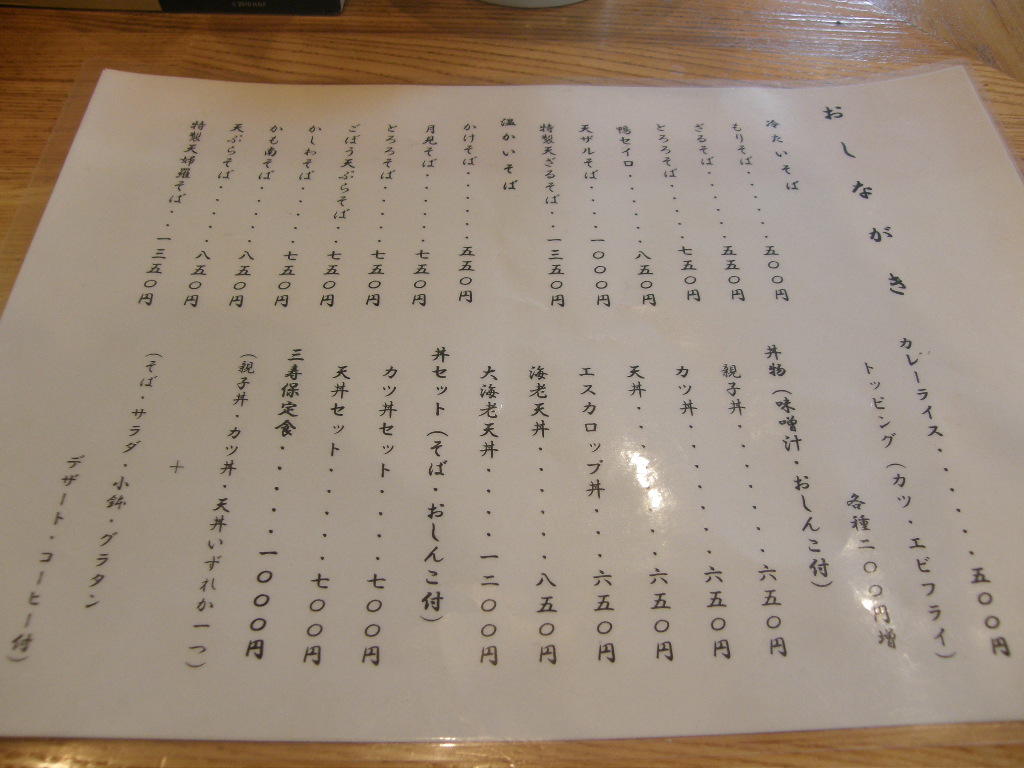 おしながき
冷たいそば
もりそば・・・・・五〇〇円
ざるそば・・・・・五五〇円
とろろそば・・・・七五〇円
鴨セイロ・・・・・八五〇円
天ザルそば・・・・一〇〇〇円
特製天ざるそば・・一三五〇円
温かいそば
かけそば・・・・・五五〇円
月見そば・・・・・七五〇円
とろろそば・・・・七五〇円
ごぼう天ぷらそば・・七五〇円
かしわそば・・・・七五〇円
かも南そば・・・・八五〇円
天ぷらそば・・・・八五〇円
特製天婦羅そば・・一三五〇円
カレーライス・・・・・・・五〇〇円
トッピング（カツ・エビフライ）
各種二〇〇円増
丼物（味噌汁・おしんこ付）
親子丼・・・・・・六五〇円
カツ丼・・・・・・六五〇円
天丼・・・・・・・六五〇円
エスカロップ丼・・・六五〇円
海老天丼・・・・・八五〇円
大海老天丼・・・・一二〇〇円
丼セット（そば・おしんこ付）
カツ丼セット・・・・七〇〇円
天丼セット・・・・・七〇〇円
三寿保定食・・・・・一〇〇〇円
（親子丼・カツ丼・天丼いずれか一つ）
＋
（そば・サラダ・小鉢・グラタン
デザート・コーヒー付）